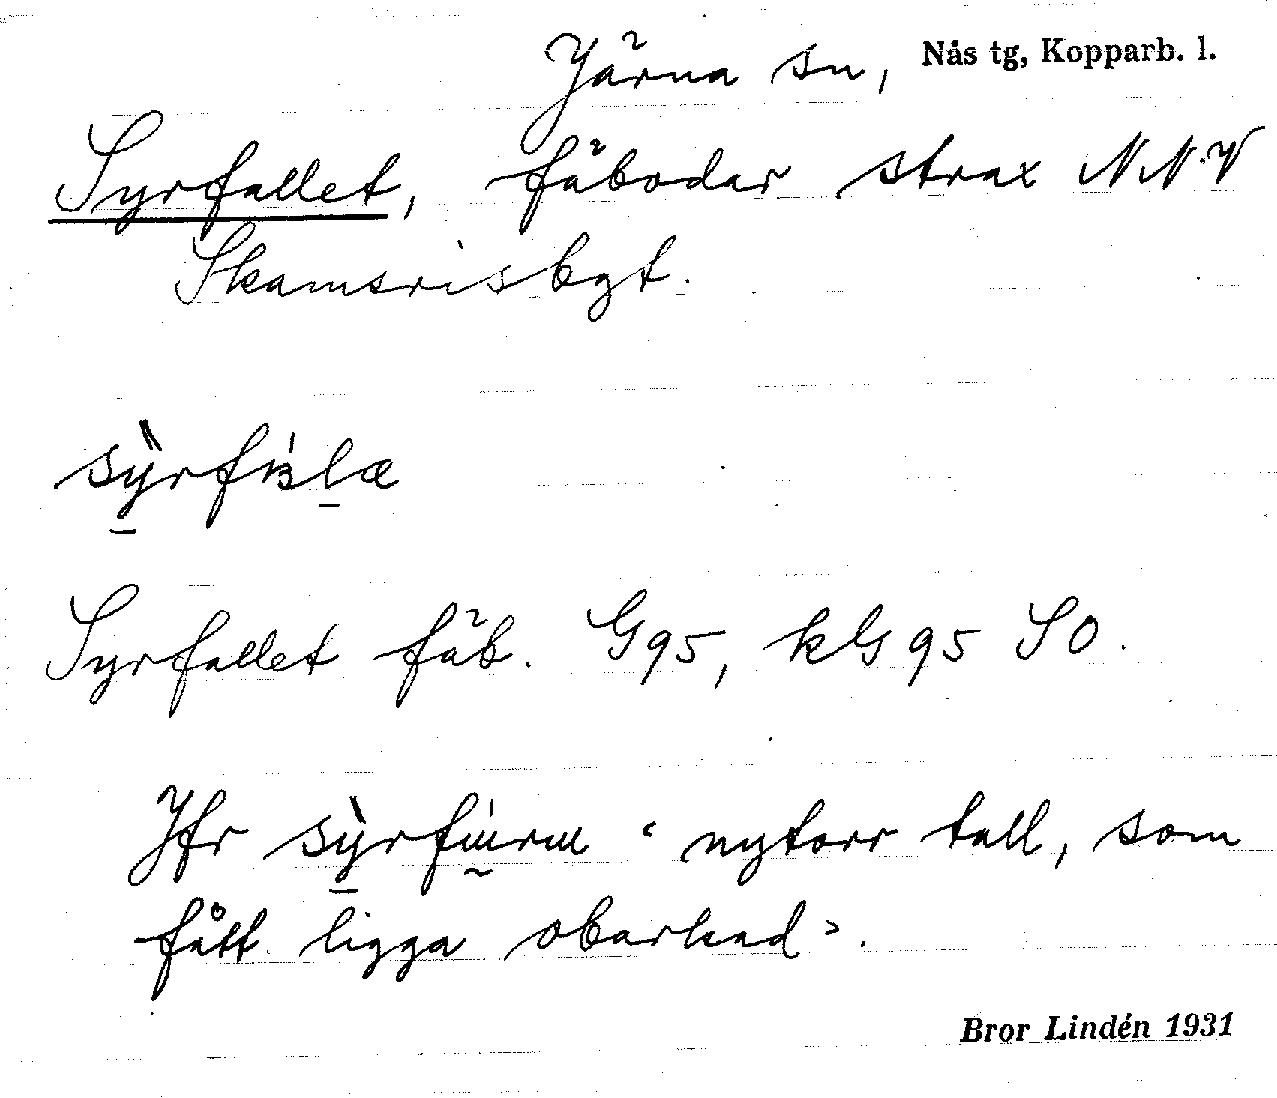 Järna sn, Nås tg, Kopparb. l.
Syrfallet, fäbodar strax NNV
Skamsrisbgt.
Syrfallet fäb. G95, kG95 SO.
Jfr ‘nytorr tall, som
fått ligga obarkad’.
Bror Lindén 1931